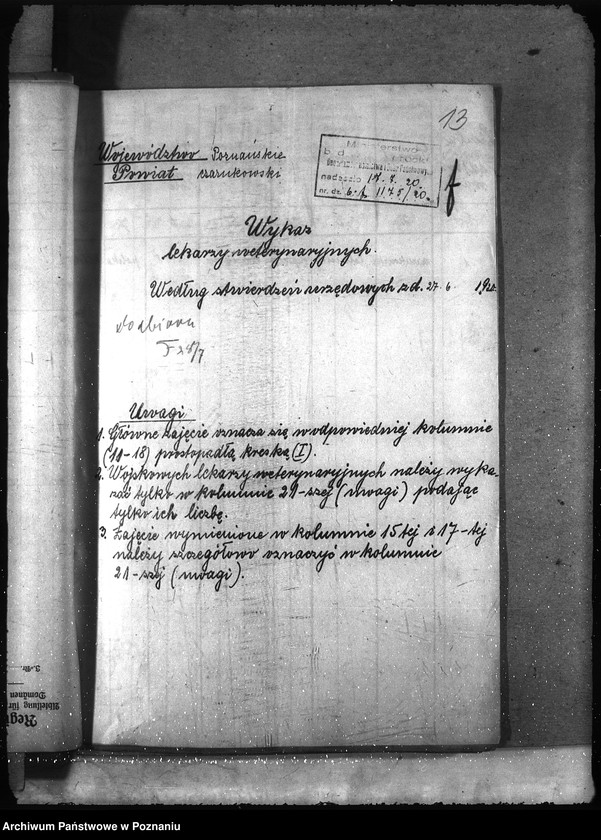 13
Województwo Poznańskie
Powiat czarnkowski
Ministerstwo
b. d. 
nadeszło 17. 7. 20.
nr. dz. 6. 1175/20.
f
Wykaz
lekarzy weterynaryjnych.
Według stwierdzeń urzędowych z d. 27. 6. 1920.
Uwagi
1. Główne zajęcie oznacza się w odpowiedniej kolumnie
(10-18) prostopadłą kreską (I).
2. Wojskowych lekarzy weterynaryjnych należy wyka-
zać tylko w kolumnie 21-szej (uwagi) podając
tylko ich liczbę.
3. Zajęcie wymienione w kolumnie 15tej i 17-tej
należy szczegółowo oznaczyć w kolumnie
21-szej (uwagi).
Abteilung für
Domänen
Regi
Archiwum Państwowe w Poznaniu